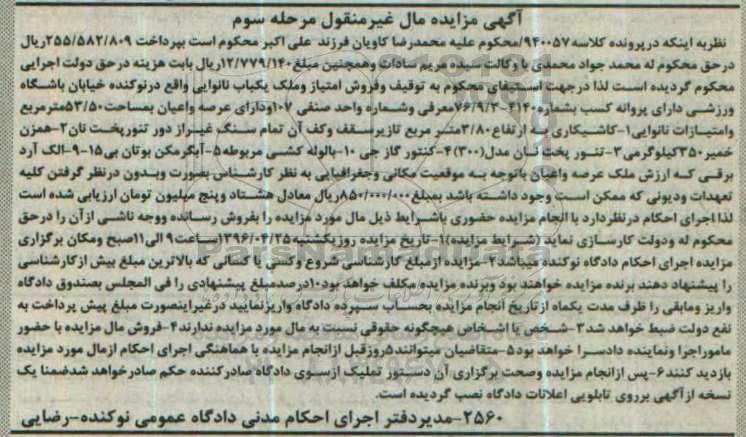 آگهی مزایده مال غیرمنقول مرحله سوم
نظربه اینکه درپرونده کلاسه۹۴۰۰۵۷/محکوم علیه محمدرضا کاویان فرزند علی اکبر محکوم است بپرداخت ۲۵۵/۵۸۲/۸۰۹ریال
درحق محکوم له محمد جواد محمدی با وکالت سیده مریم سادات وهمچنین مبلغ۱۲/۷۷۹/۱۴۰ریال بابت هزینه درحق دولت اجرایی
محکوم گردیده است لذا درجهت استیفای محکوم به توقیف وفروش امتیاز وملک یکباب نانوایی واقع درنوکنده خیابان باشگاه
ورزشی دارای پروانه کسب بشماره۴۱۴۰-۷۶/۹/۳معرفی وشماره واحد صنفی ۱۰۷ودارای عرصه واعیان بمساحت۵۳/۵۰مترمربع
وامتیازات نانوایی۱-کاشیکاری به ارتفاع۲/۸۰متر مربع تازیرسقف وکف آن تمام سنگ غیراز دور تنورپخت نان۲-همزن
خمیر۳۵۰کیلوگرمی۳-تنور پخت نان مدل(۳۰۰)۴-کنتور گاز جی ۱۰-بالوله کشی مربوطه۵-آبگرمکن بوتان بی۱۵-۹-الک آرد
برقی که ارزش ملک عرصه واعیان باتوجه به موقعیت مکانی وجغرافیایی به نظر کارشناس بصورت وبدون درنظر گرفتن کلیه
تعهدات ودیونی که ممکن است وجود داشته باشد بمبلغ۸۵۰/۰۰۰/۰۰۰ریال معادل هشتاد وپنج میلیون تومان ارزیابی شده است
لذا اجرای احکام درنظردارد با انجام مزایده حضوری باشرایط ذیل مال مورد مزایده را بفروش رسانده ووجه ناشی ازآن را درحق
محکوم له ودولت کارسازی نماید (شرایط مزایده)۱-تاریخ مزایده روزیکشنبه۱۳۹۶/۰۴/۲۵ساعت۹ الی۱۱صبح ومکان برگزاری
مزایده اجرای احکام دادگاه نوکنده میباشد۲-مزایده ازمبلغ کارشناسی شروع وکسی یا کسانی که بالاترین مبلغ بیش ازکارشناسی
را پیشنهاد دهند برنده مزایده خواهند بود وبرنده مزایده مکلف خواهد بود۱۰درصدمبلغ پیشنهادی را فی المجلس بصندوق دادگاه
واریز ومابقی را ظرف مدت یکماه ازتاریخ انجام مزایده بحساب سپرده دادگاه واریزنمایید درغیراینصورت مبلغ پیش پرداخت به
نفع دولت ضبط خواهد شد۳-شخص یا اشخاص هیچگونه حقوقی نسبت به مال مورد مزایده ندارند۴-فروش مال مزایده با حضور
ماموراجرا ونماینده دادسرا خواهد بود۵-متقاضیان میتوانند۵روزقبل ازانجام مزایده با هماهنگی اجرای احکام ازمال مورد مزایده
بازدید کنند۶-پس ازانجام مزایده وصحت برگزاری آن دستور تملیک ازسوی دادگاه صادرکننده حکم صادرخواهد شدضمنا یک
نسخه ازآگهی برروی تابلویی اعلانات دادگاه نصب گردیده است.
۲۵۶۰-مدیردفتر اجرای احکام مدنی دادگاه عمومی نوکنده-رضایی